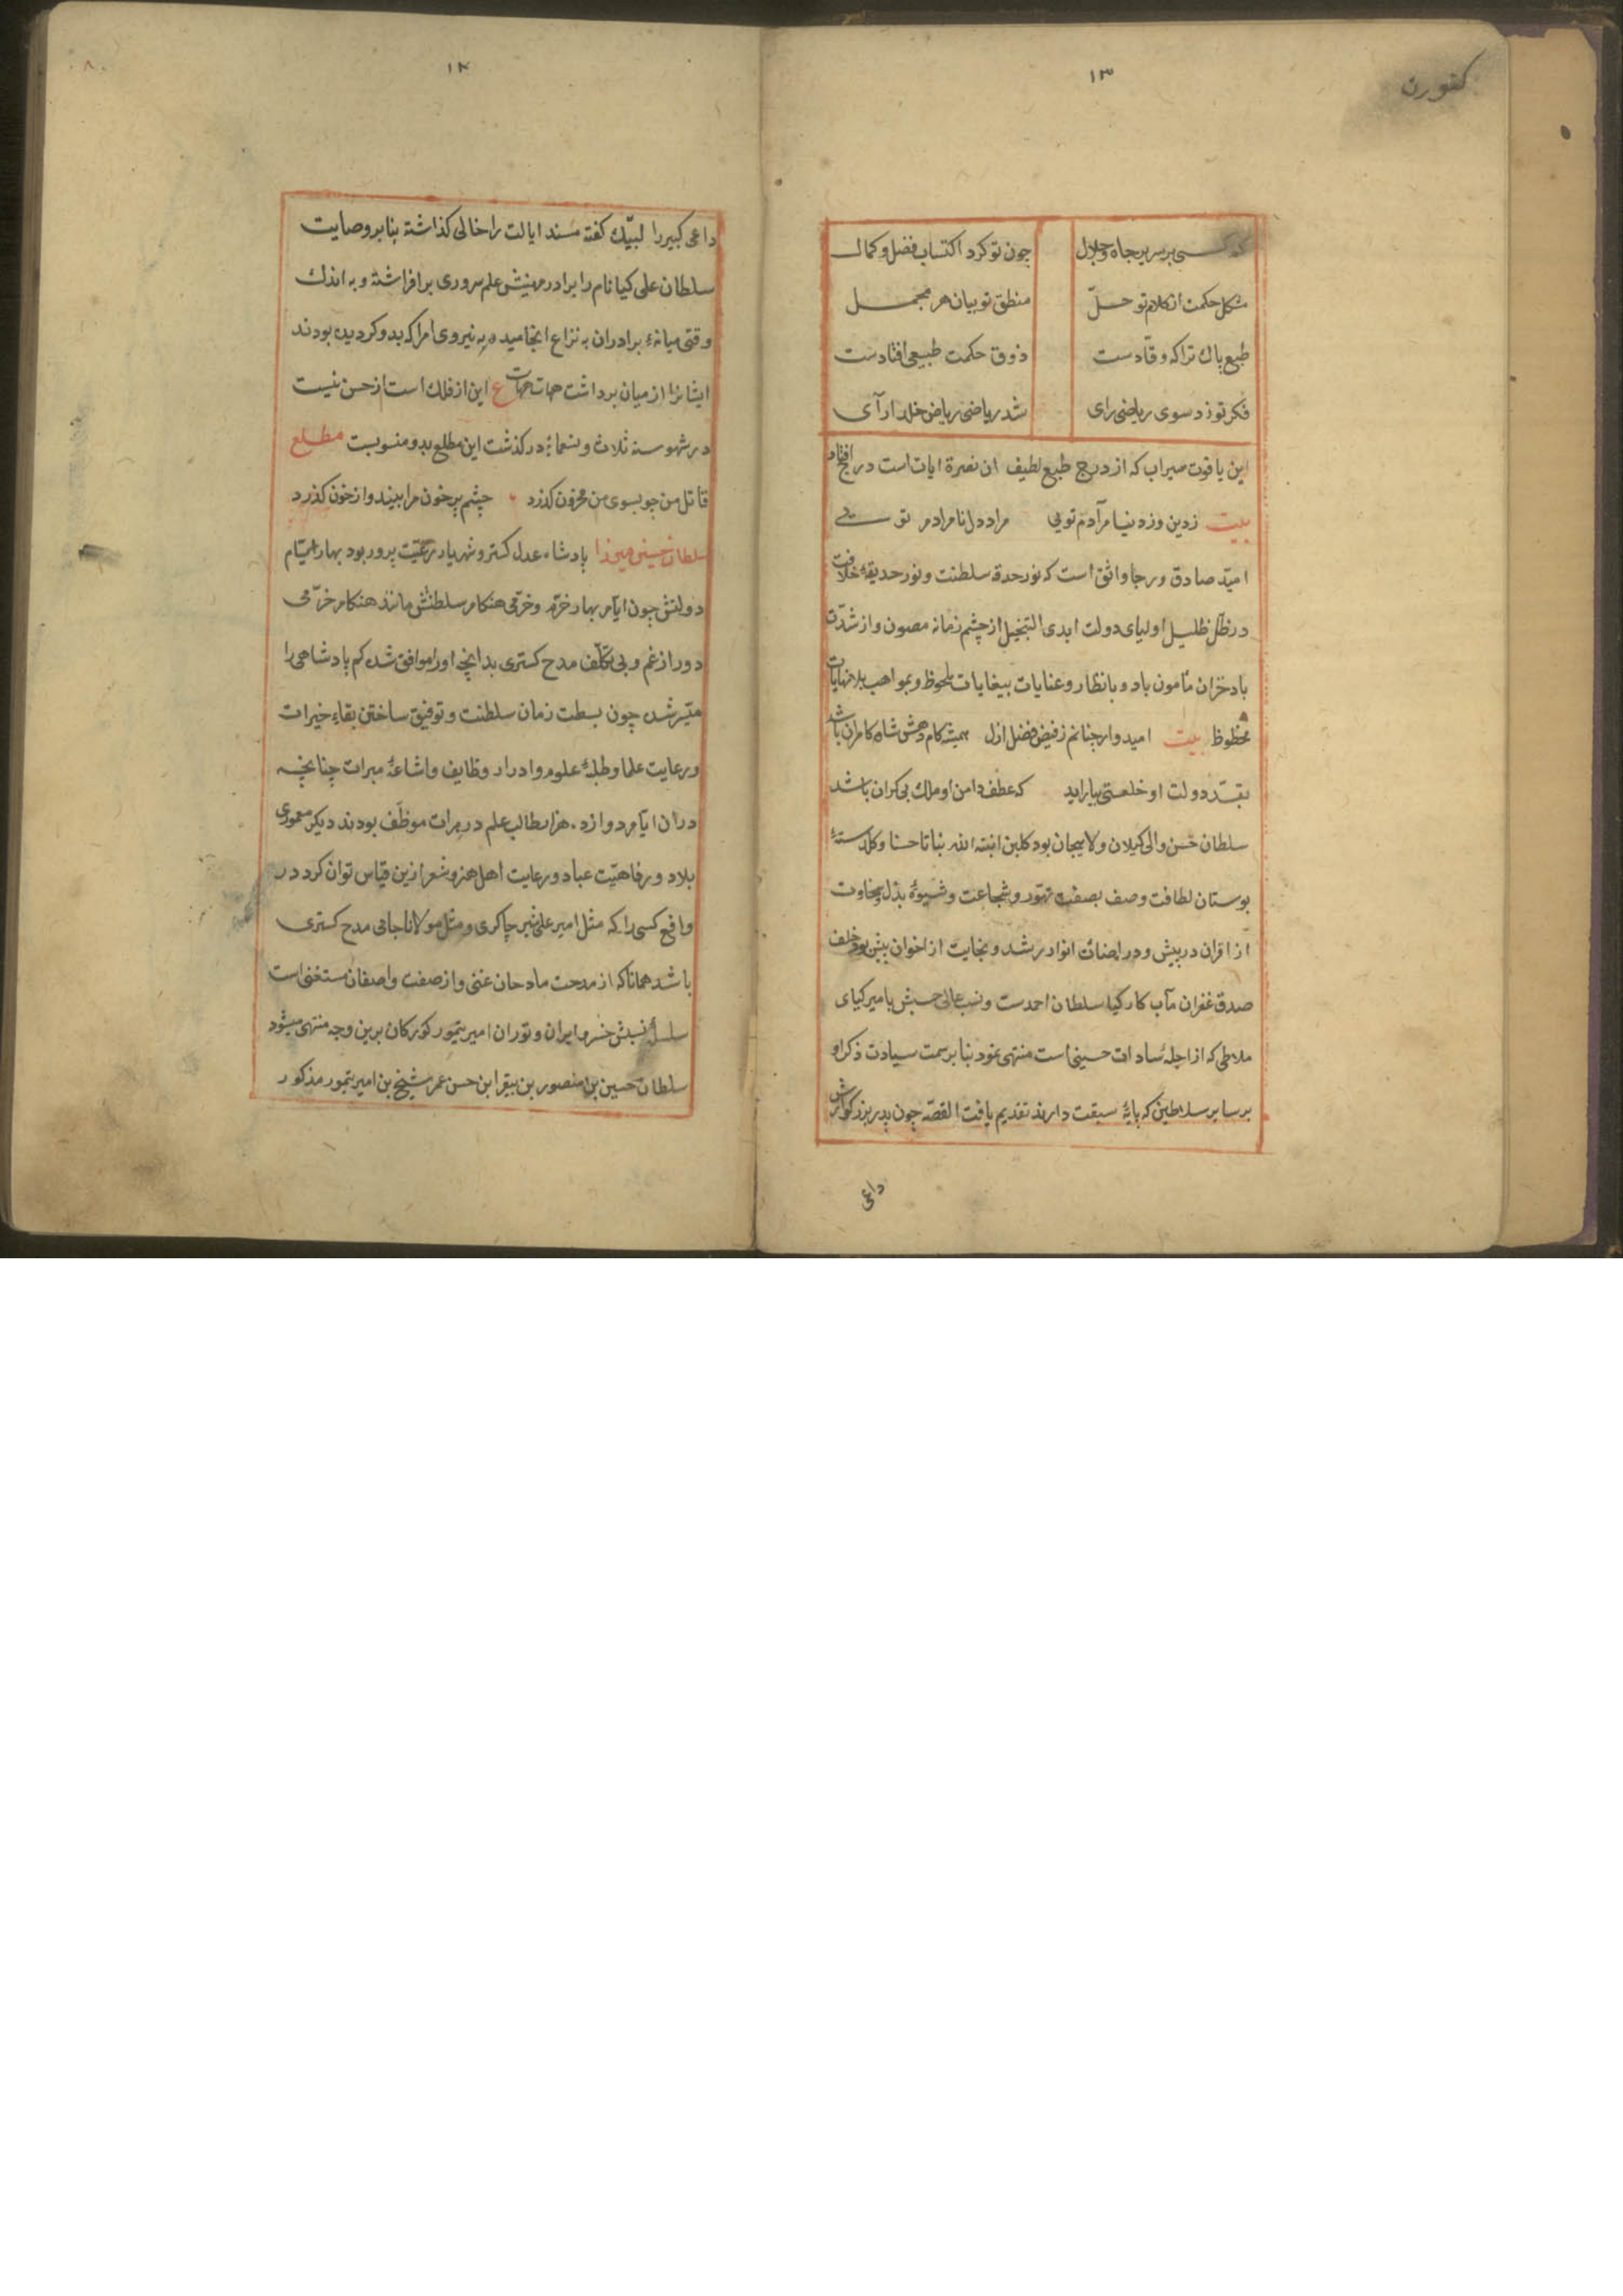 كفورن
١٣
كه كسى بر سرير جاه و جلال چون تو كرد اكتساب فضل و كمال
مشكل حكمت از كلام تو حلّ منطق تو بيان هر مجمل
طبع پاك تراكه وقّادست ذوق حكمت طبيعى افتادست
فكر تو زد سوى رياضى راى شد رياضى رياض خلد آراى
اين ياقوت سيراب كه از درج طبع لطيف ان نصرة ايات است در افتاد
بيت زدين وزدنيا مرآدم تويى مراد دل نامرادم تويى
اميّد صادق ورجا واثق است كه نور حدقهٔ سلطنت ونور حديقهٔ خلافت
در ظلّ ظليل اولياى دولت ابدى از چشم زمانه مصون واز شدّت
باد خزان مأمون باد وبانظار وعنايات بيغايات ملحوظ وبمواهب بلانهايات
محظوظ بيت اميدوار چنانم زفيض فضل ازل هميشه كام دهش شاه كامران باشد
بقدّ دولت او خلعتى بيارايد كه عطف دامن او ملك بى كران باشد
سلطان حسن والى كيلان ولاهيجان بود كلبن انبته الله نباتا حسنا وكلدستهٔ
بوستان لطافت وصف بصفت تهوّر وشجاعت وشيوهٔ بذل وسخاوت
از اقران در پيش ودر اصناف انوادر شد ونجابت از اخوان بيش بود خلف
صدق غفران مآب كاركيا سلطان احمدست ونسب عالى حسبش بامير كياى
ملاطى كه از اجلهٔ سادات حسينى است منتهى نمود بنا بر سمت سيادت ذكر او
بر ساير سلاطين كه پايهٔ سبقت دارند تقديم يافت القصّه چون پدر بزركوارش
داعى
١٤
داعى كبير را لبيّك كفته مسند ايالت را خالى كذاشته بنا بر وصايت
سلطان على كيا نام را برادر مهينش علم سرورى بر افراشته وبه اندك
وقتى ميانهٔ برادران به نزاع انجاميده به نيروى امرا كه بدو كرديده بودند
ايشانرا از ميان برداشت هيهات هيهات ع اين از فلك است از حسن نيست
در شهور سنه ثلاث وتسعمايه دركذشت اين مطلع بدو منسوبست مطلع
قاتل من چو بسوى من محزون كذرد چشم پر خون مرا بيند واز خون كذرد
سلطان حسين ميرزا پادشاه عدل كستر وشهريار رعيّت پرور بود بهار ايّام
دولتش چون ايّام بهار خرّم وخرّمى هنكام سلطنتش مانند هنكام خرّمى
دور از غم وبى تكلّف مدح كسترى بدانچه او را موافق شده كم پادشاهى را
ميّسر شده چون بسطت زمان سلطنت وتوفيق ساختن بقاع خيرات
ورعايت علما وطلبهٔ علوم وادرار وظايف واشاعهٔ مبرات چنانچه
دران ايّام دوازده هزار طالب علم در هرات موظّف بودند ديكر معمورى
بلاد ورفاهيّت عباد ورعايت اهل هنر وشعر ازين قياس توان كرد در
واقع كسى را كه مثل امير على شير چاكرى ومثل مولانا جامى مدح كسترى
باشد همانا كه از مدحت مادحان غنى واز صفت واصفان مستغنى است
سلسلهٔ نسبش خسرو ايران وتوران امير تيمور كوركان برين وجه منتهى ميشود
سلطان حسين بن منصور بن بيقرا ابن حسن عمر شيخ بن امير تيمور مذكور
٨